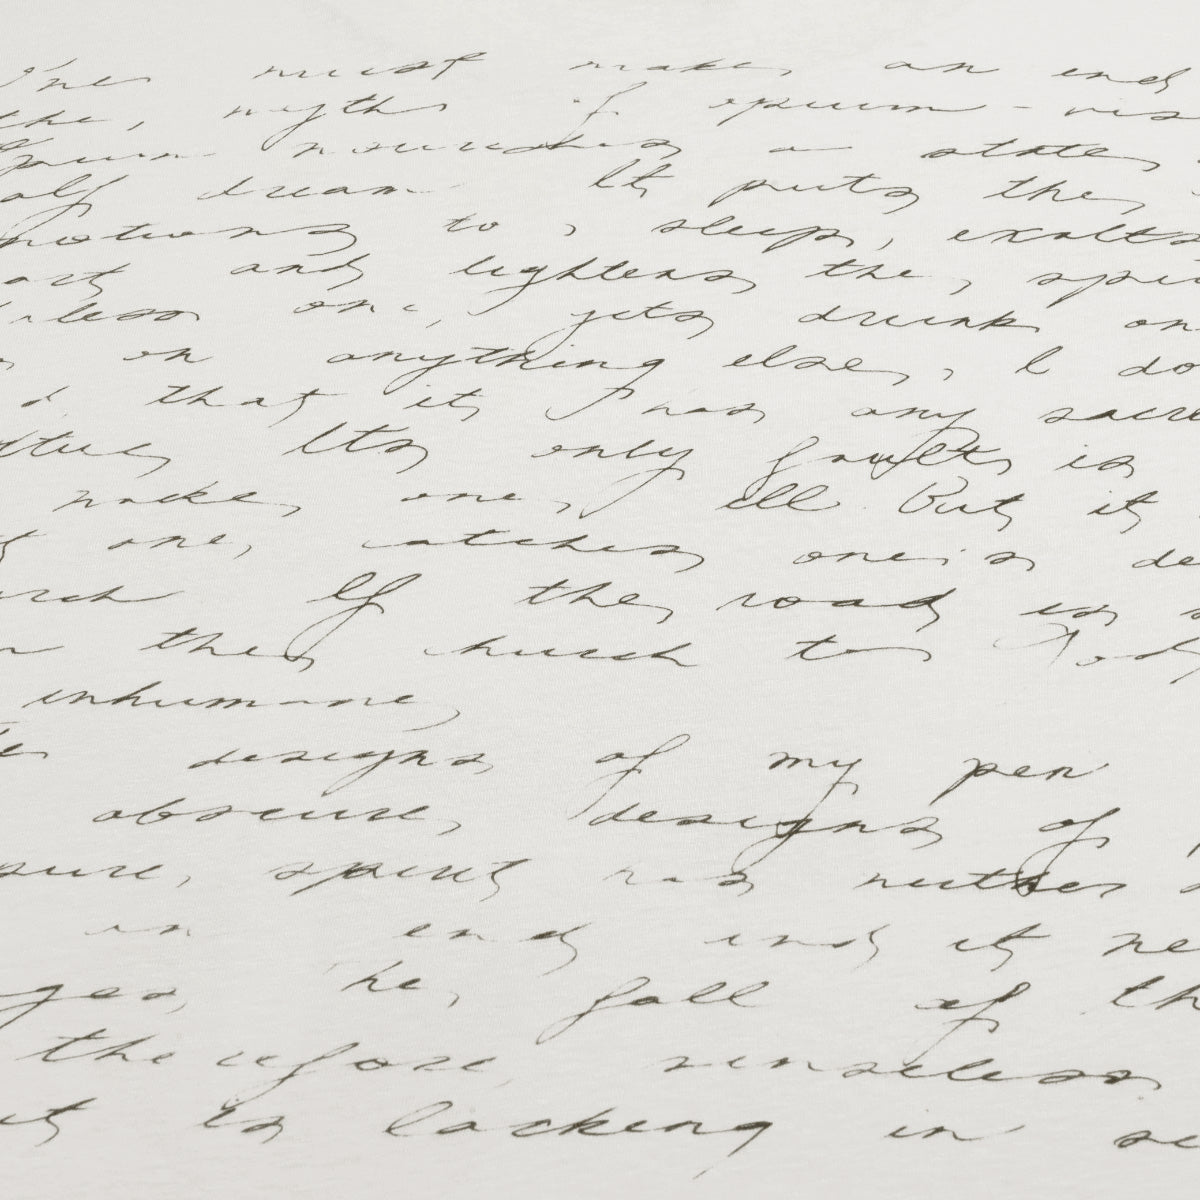 One must make an end
the myth of opium-vis
Opium nourishes a state
half dream It puts the
emotions to sleep, exalts
heart and lightens the spi
less one gets drunk on
on anything else, I do
that it has any sacre
virtue Its only fault is
make one ill But it
one, catches one's de
church If the road is
then church to God
inhumane
The designs of my pen
obscure designs of
pure spirit has neither
in end and it ne
ages, he fall of th
therefore senseless
it is lacking in se